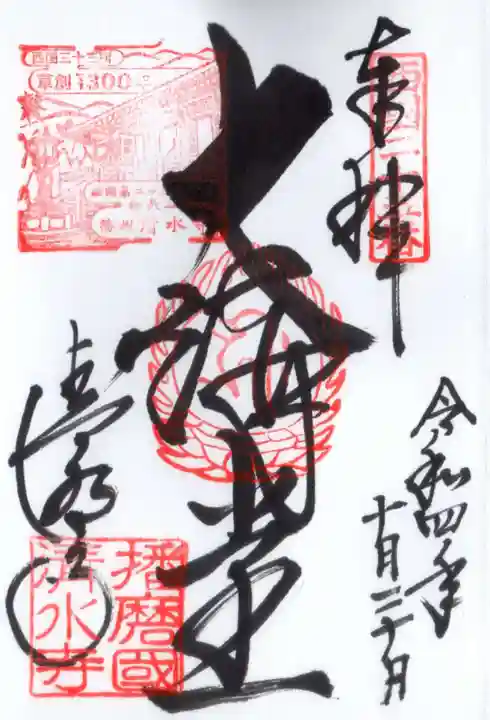 奉拝
西国二十五番
令和四年
十月二十日
大講堂
西国三十三所
草創1300年
播州清水寺
播磨國
清水寺